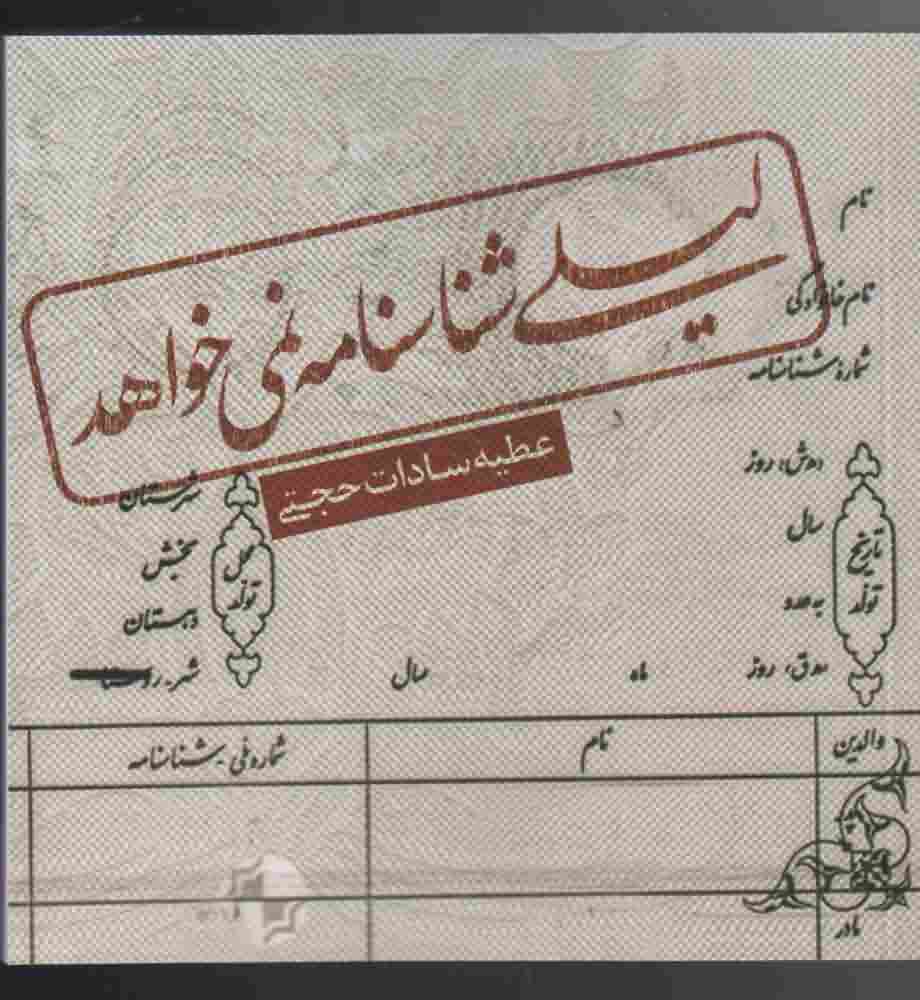 لیلی شناسنامه نمی خواهد
عطیه سادات حجتی
نام
نام خانوادگی
شماره شناسنامه
تاریخ تولد
ه‍.ش، روز
سال
ه‍.ق، روز ماه سال
محل تولد
شهرستان
بخش
دهستان
شهر-روستا
والدین نام شماره ملی - شناسنامه
پدر
مادر